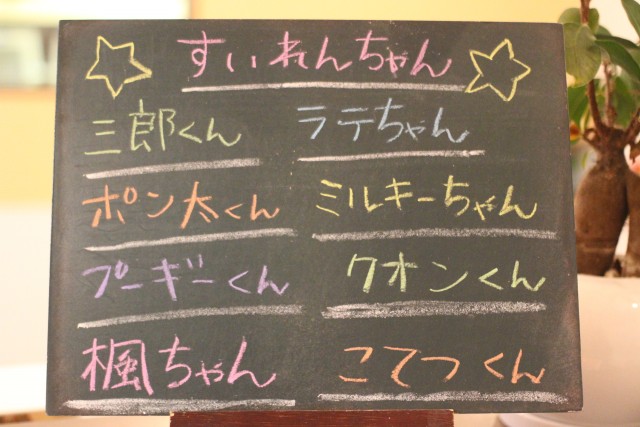 すいれんちゃん
三郎くん ラテちゃん
ポン太くん ミルキーちゃん
プーギーくん クオンくん
楓ちゃん こてつくん